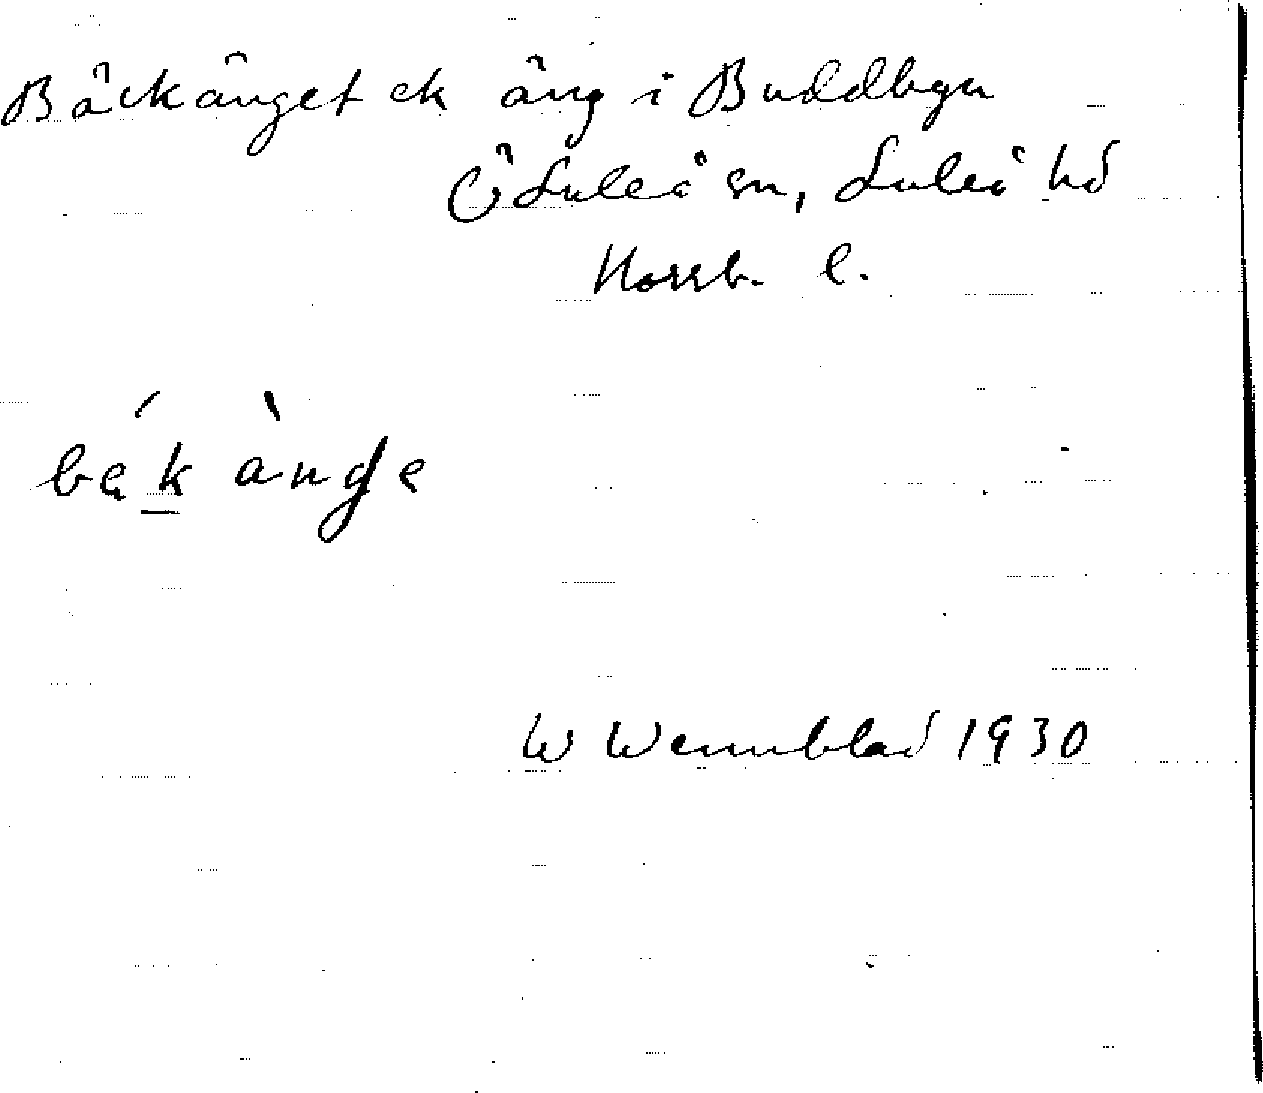 Bäckänget ek äng i Buddbyn
Ö Luleå sn, Luleå hd
Norrb. l.
bęk ànge
W Wennblad 1930